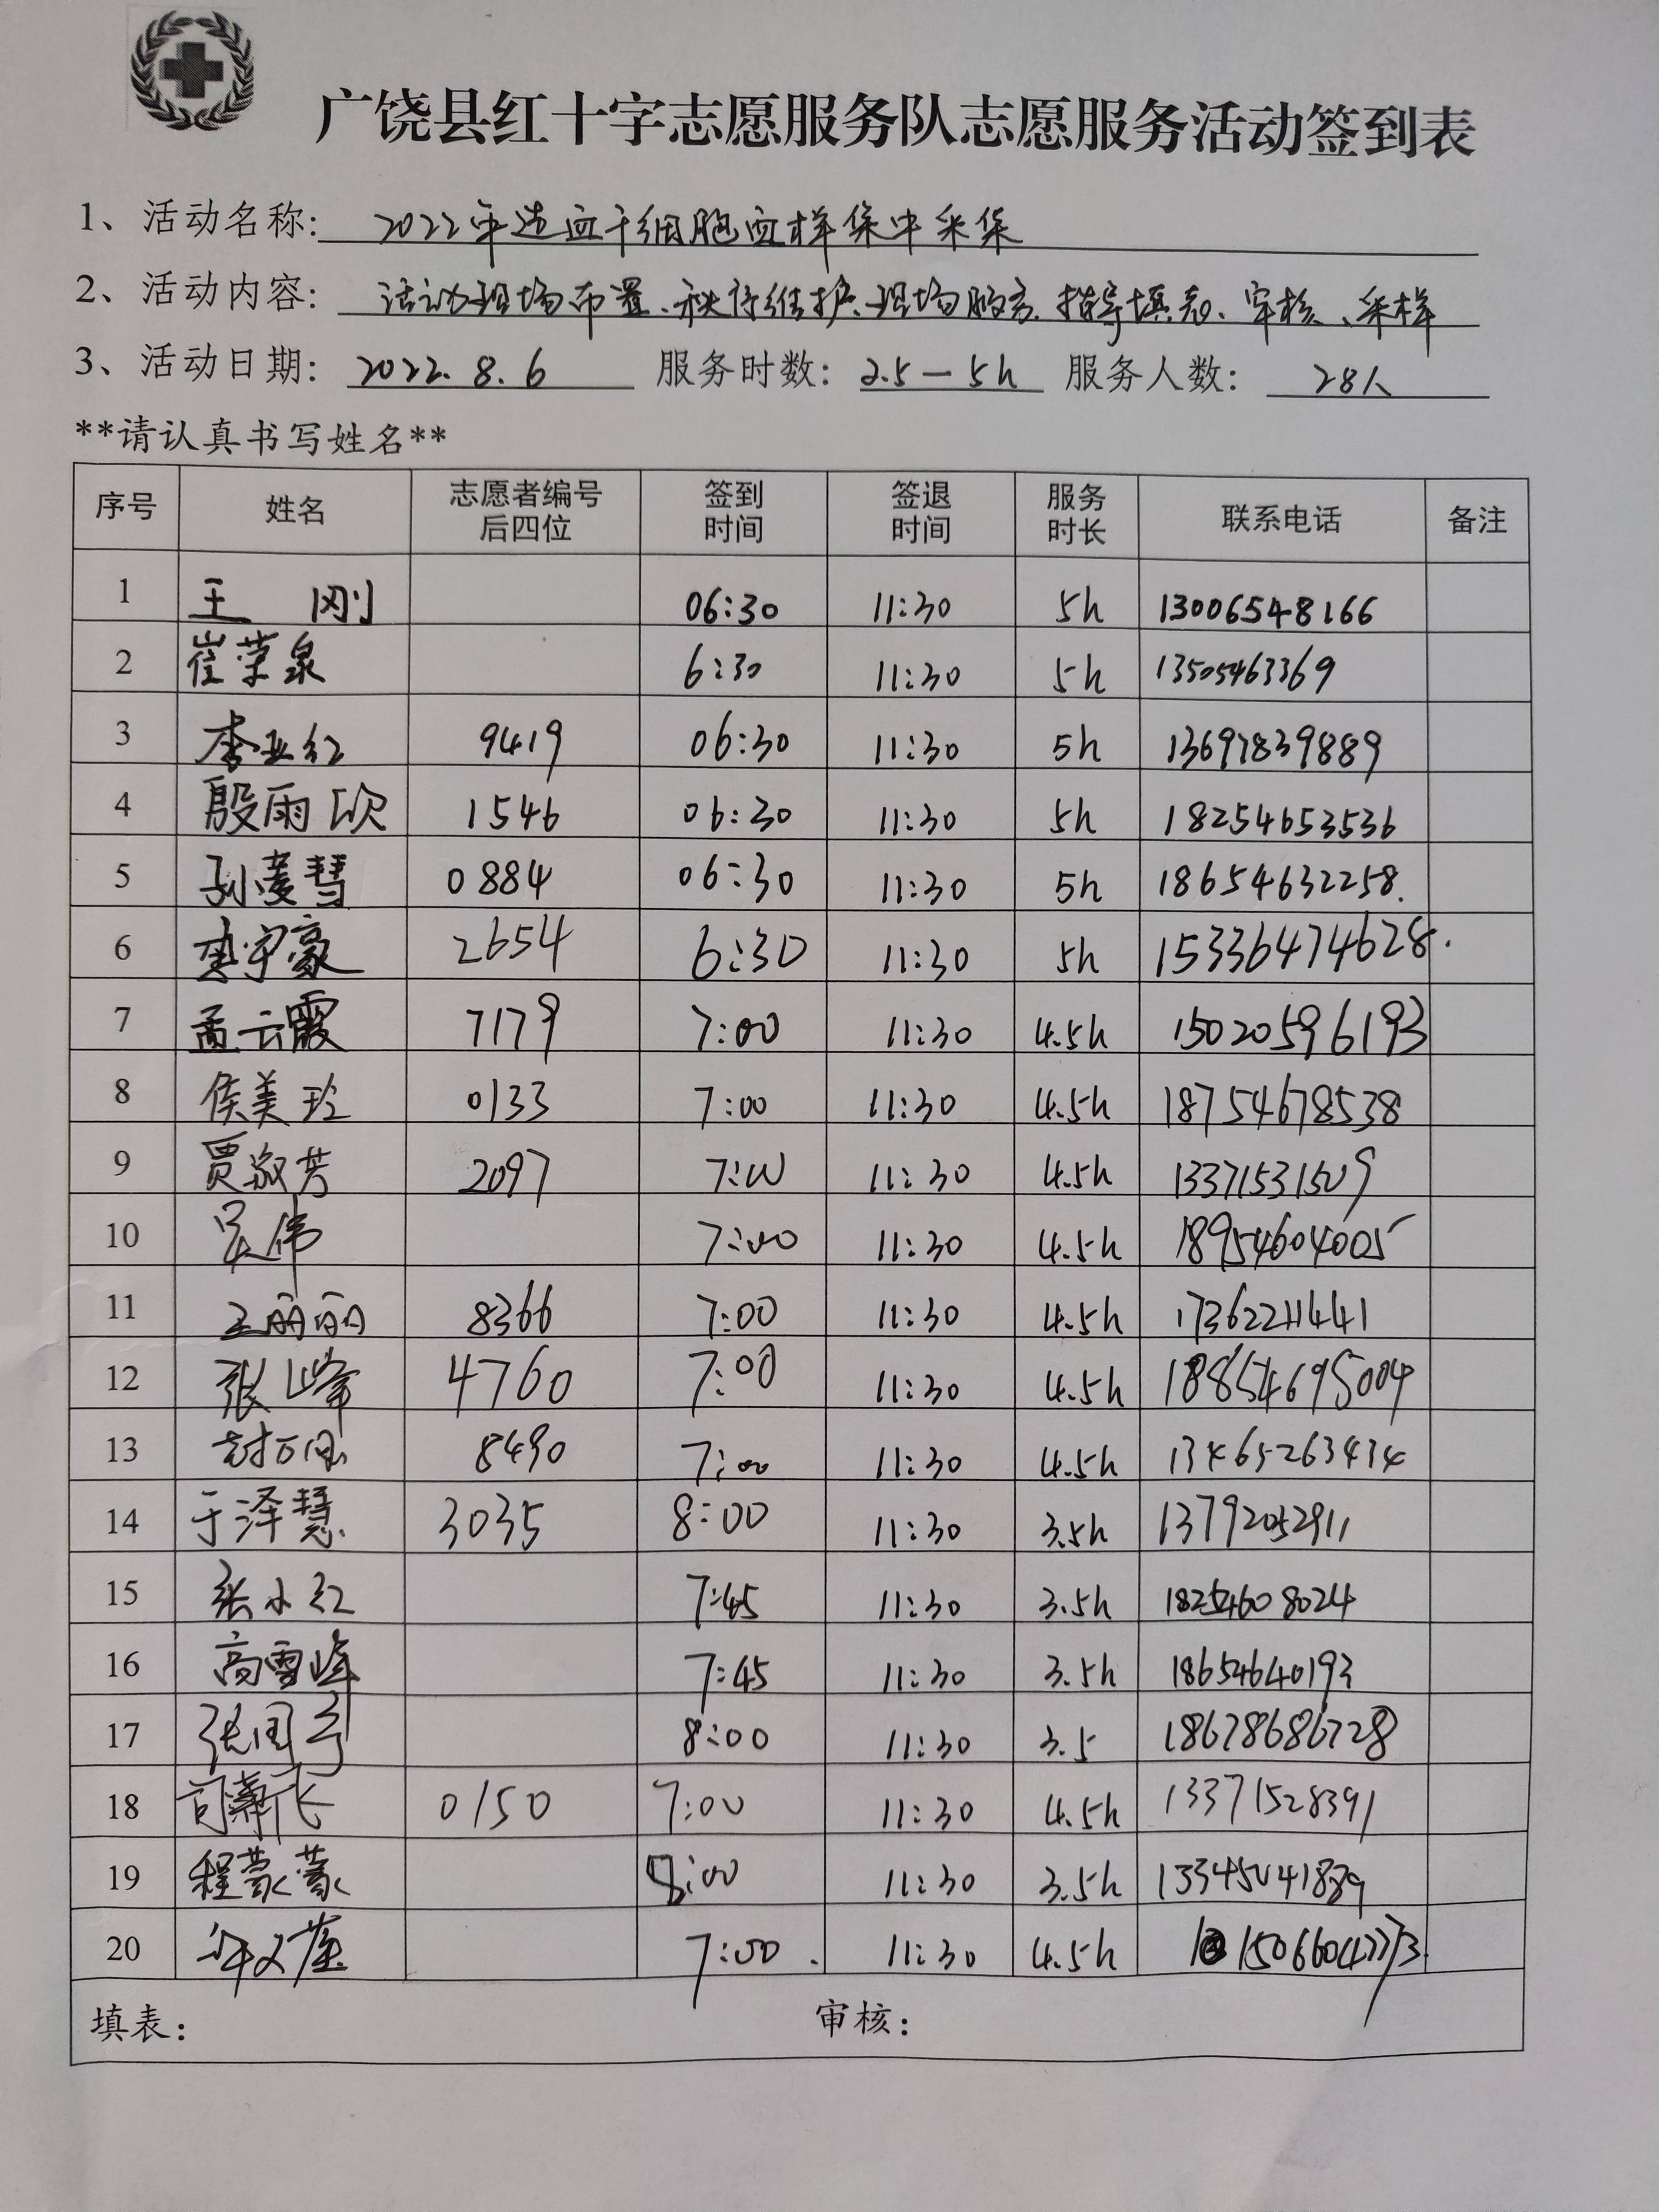 广饶县红十字志愿服务队志愿服务活动签到表
1、活动名称: 2022年造血干细胞血样集中采集
2、活动内容: 活动现场布置、秩序维护、现场服务、指导填表、审核、采样
3、活动日期: 2022.8.6 服务时数: 2.5—5h 服务人数: 28人
**请认真书写姓名**
序号 姓名 志愿者编号后四位 签到时间 签退时间 服务时长 联系电话 备注
1 王刚 06:30 11:30 5h 13006548166
2 崔荣泉 6:30 11:30 5h 13505463369
3 李亚红 9419 06:30 11:30 5h 13697839889
4 殷雨欣 1546 06:30 11:30 5h 18254653536
5 孙凌慧 0884 06:30 11:30 5h 18654632258.
6 李宇豪 2654 6:30 11:30 5h 15336474628.
7 孟云霞 7179 7:00 11:30 4.5h 15020596193
8 侯美玲 0133 7:00 11:30 4.5h 18754678538
9 贾淑芳 2097 7:00 11:30 4.5h 13371531509
10 吴伟 7:00 11:30 4.5h 18954604005
11 王丽丽 8366 7:00 11:30 4.5h 17362211441
12 张峰 4760 7:00 11:30 4.5h
13 8490 7:00 11:30 4.5h 13465263434
14 于泽慧 3035 8:00 11:30 3.5h 13792052911
15 张小红 7:45 11:30 3.5h 18254608024
16 高雪峰 7:45 11:30 3.5h 18654640193
17 8:00 11:30 3.5 18678686728
18 0150 7:00 11:30 4.5h 13371528391
19 程蒙蒙 8:00 11:30 3.5h 13345041839
20 7:00. 11:30 4.5h
填表: 审核: